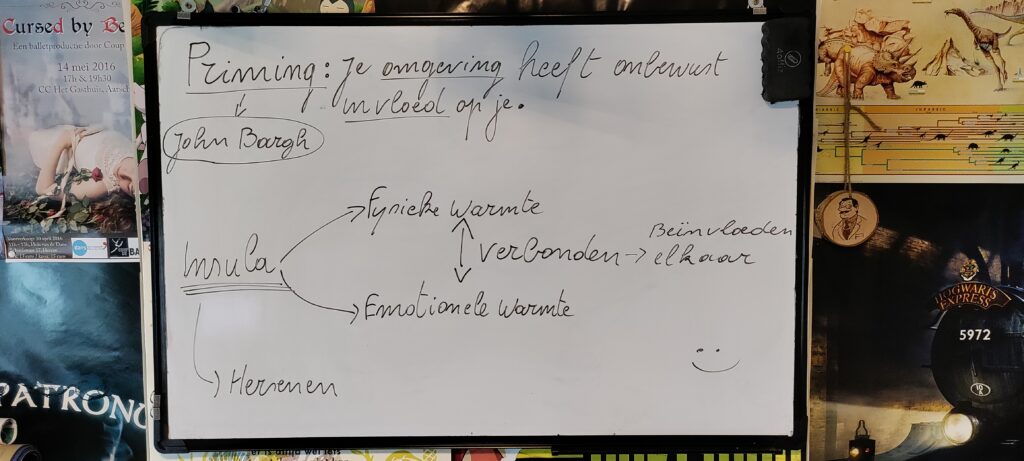 Cursed by Be
Een balletproductie door Coup
14 mei 2016
17h & 19h30
CC Het Gasthuis, Aarsch
PATRONU
Priming: Je omgeving heeft onbewust
invloed op je.
John Bargh
Fysieke warmte
Insula
verbonden → Beïnvloeden
elkaar
Emotionele warmte
Hersenen
JURASSIC
HOGWARTS
EXPRESS
5972